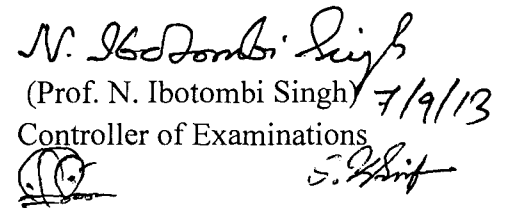 N. Ibotombi Singh
(Prof. N. Ibotombi Singh) 7/9/13
Controller of Examinations